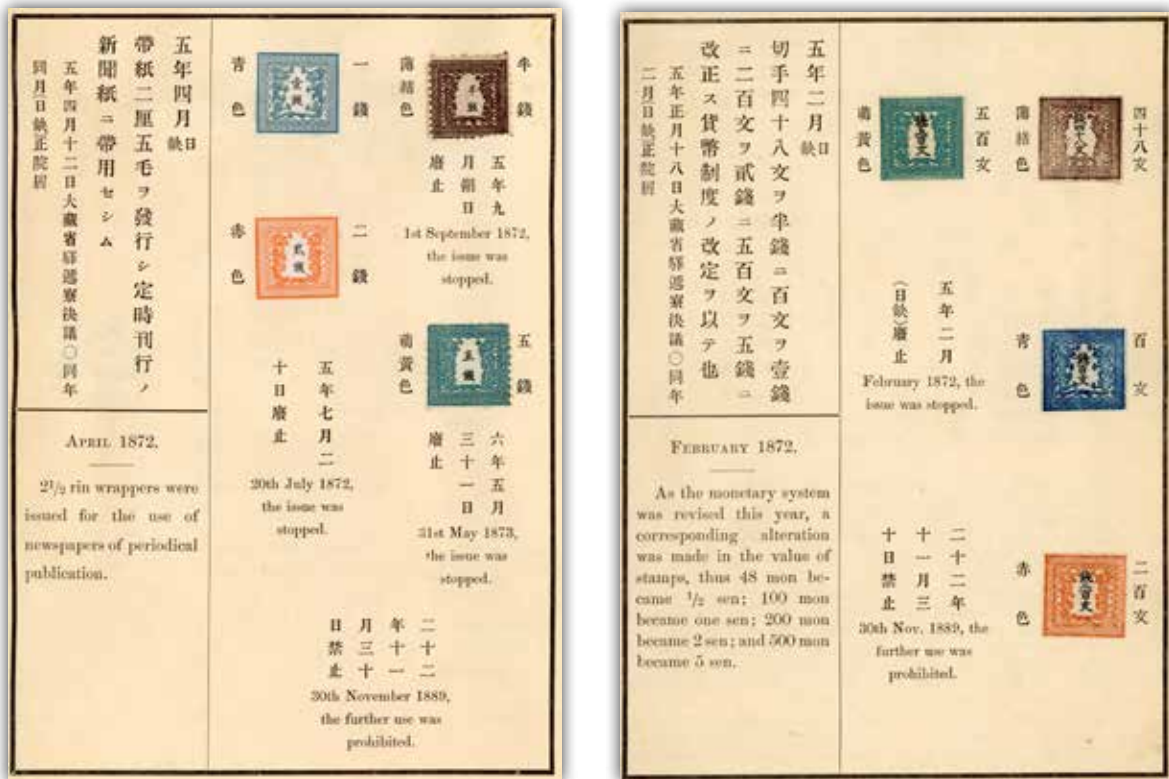 五年四月日缺
帶紙二厘五毛ヲ發行シ定時刊行ノ
新聞紙ニ帶用セシム
五年四月十二日大藏省驛遞寮決議〇同年
同月日缺正院屆
APRIL 1872.
2 1/2 rin wrappers were
issued for the use of
newspapers of periodical
publication.
半錢
半錢
五年九
月朔日
廢止
1st September 1872,
the issue was
stopped.
一錢
壹錢
青色
二錢
貳錢
赤色
五年七月二
十日廢止
20th July 1872,
the issue was
stopped.
五錢
五錢
萌黃色
六年五月
三十一日
廢止
31st May 1873,
the issue was
stopped.
二十二
年十一
月三十
日禁止
30th November 1889,
the further use was
prohibited.
五年二月日缺
切手四十八文ヲ半錢ニ百文ヲ壹錢
ニ二百文ヲ貳錢ニ五百文ヲ五錢ニ
改正ス貨幣制度ノ改定ヲ以テ也
五年正月十八日大藏省驛遞寮決議〇同年
二月日缺正院屆
FEBRUARY 1872.
As the monetary system
was revised this year, a
corresponding alteration
was made in the value of
stamps, thus 48 mon be-
came 1/2 sen; 100 mon
became one sen; 200 mon
became 2 sen; and 500 mon
became 5 sen.
四十八文
錢四十八文
五百文
錢五百文
萌黃色
百文
錢百文
青色
五年二月
(日缺)廢止
February 1872, the
issue was stopped.
二百文
錢二百文
赤色
二十二年
十一月三
十日禁止
30th Nov. 1889, the
further use was
prohibited.